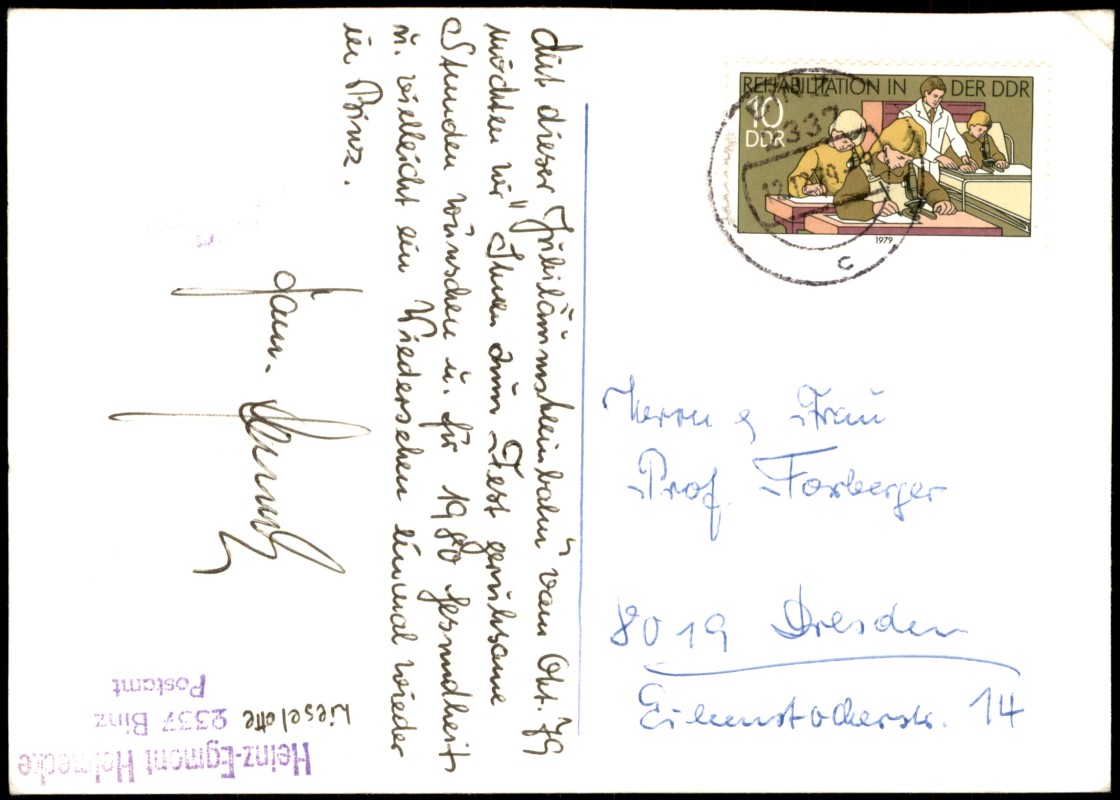 Mit dieser "Jubiläumsheimbahn" vom Okt. 79
möchten wir Ihnen zum Fest geruhsame
Stunden wünschen u. für 1980 Gesundheit
u. vielleicht ein Wiedersehen einmal wieder
in Binz.
Fam.
Heinz-Egmont
Lieselotte
2337 Binz
Postamt
REHABILITATION IN DER DDR
10
DDR
1979
2337
c
Herrn & Frau
Prof. Forberger
8019 Dresden
Eilenstockerstr. 14